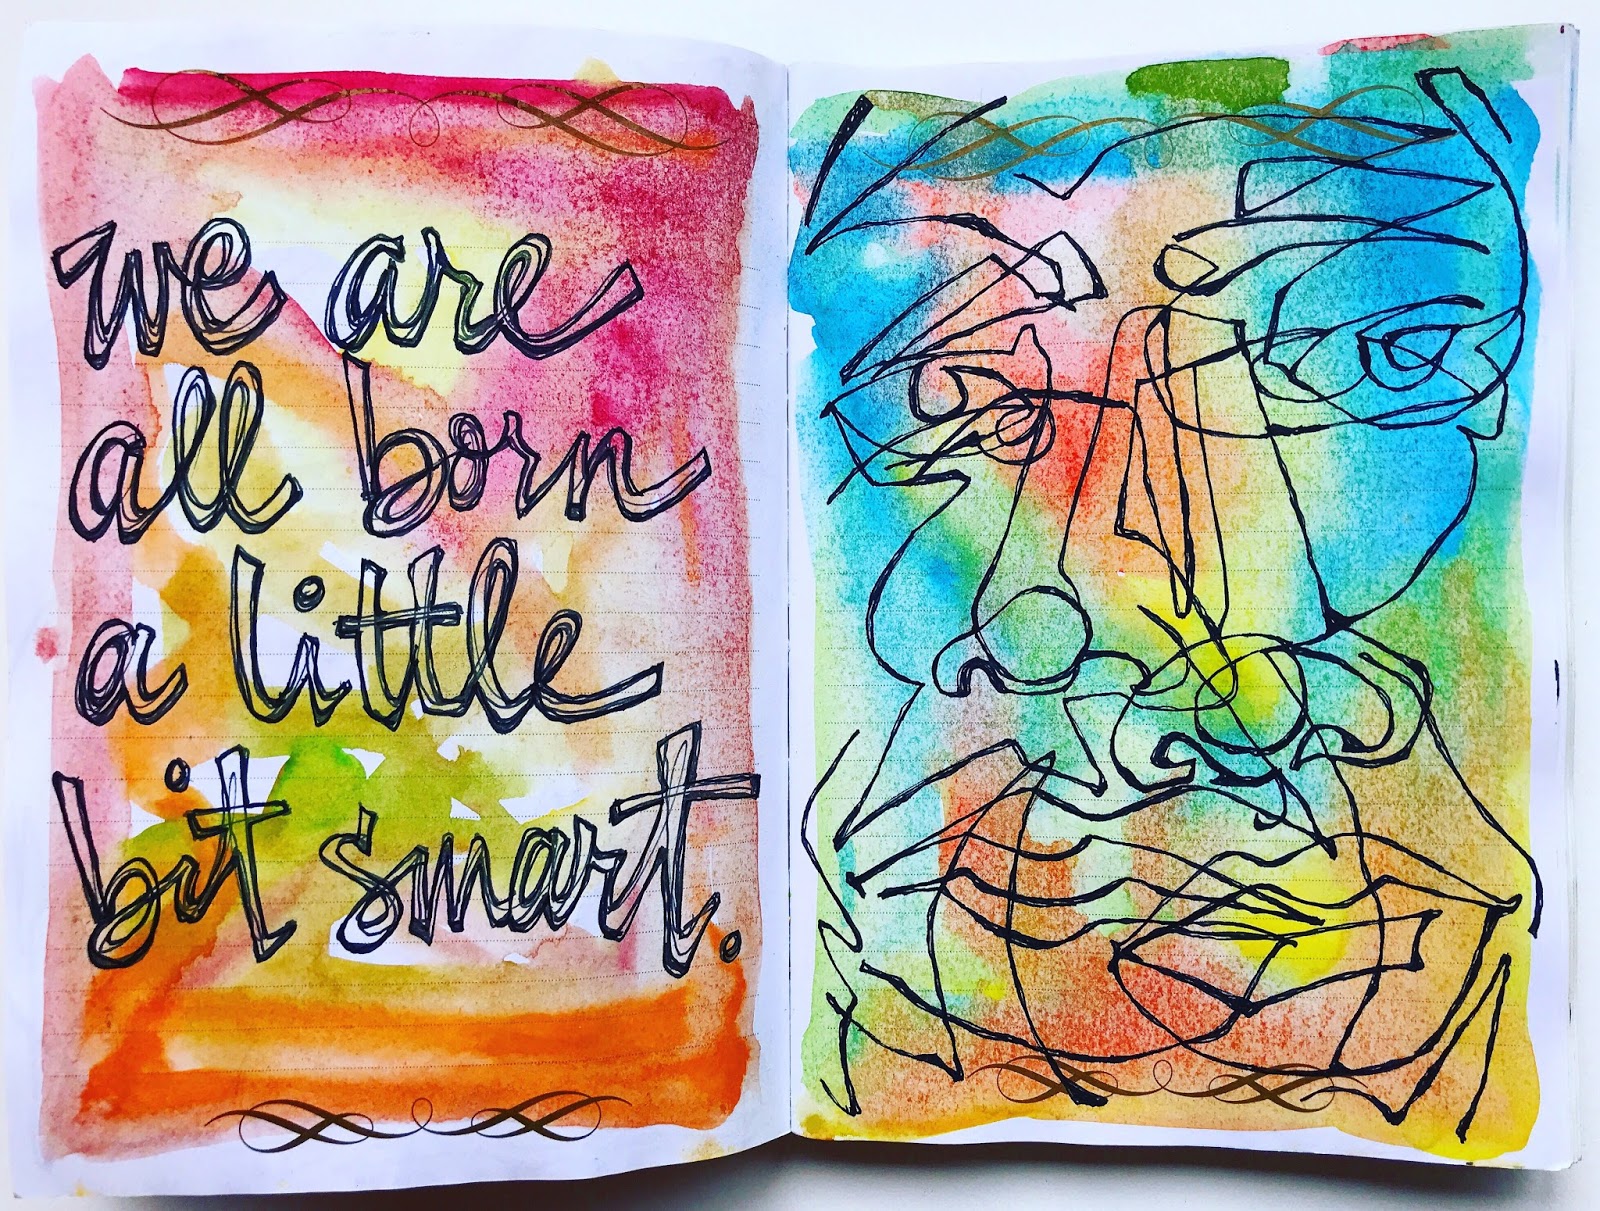 we are
all born
a little
bit smart.